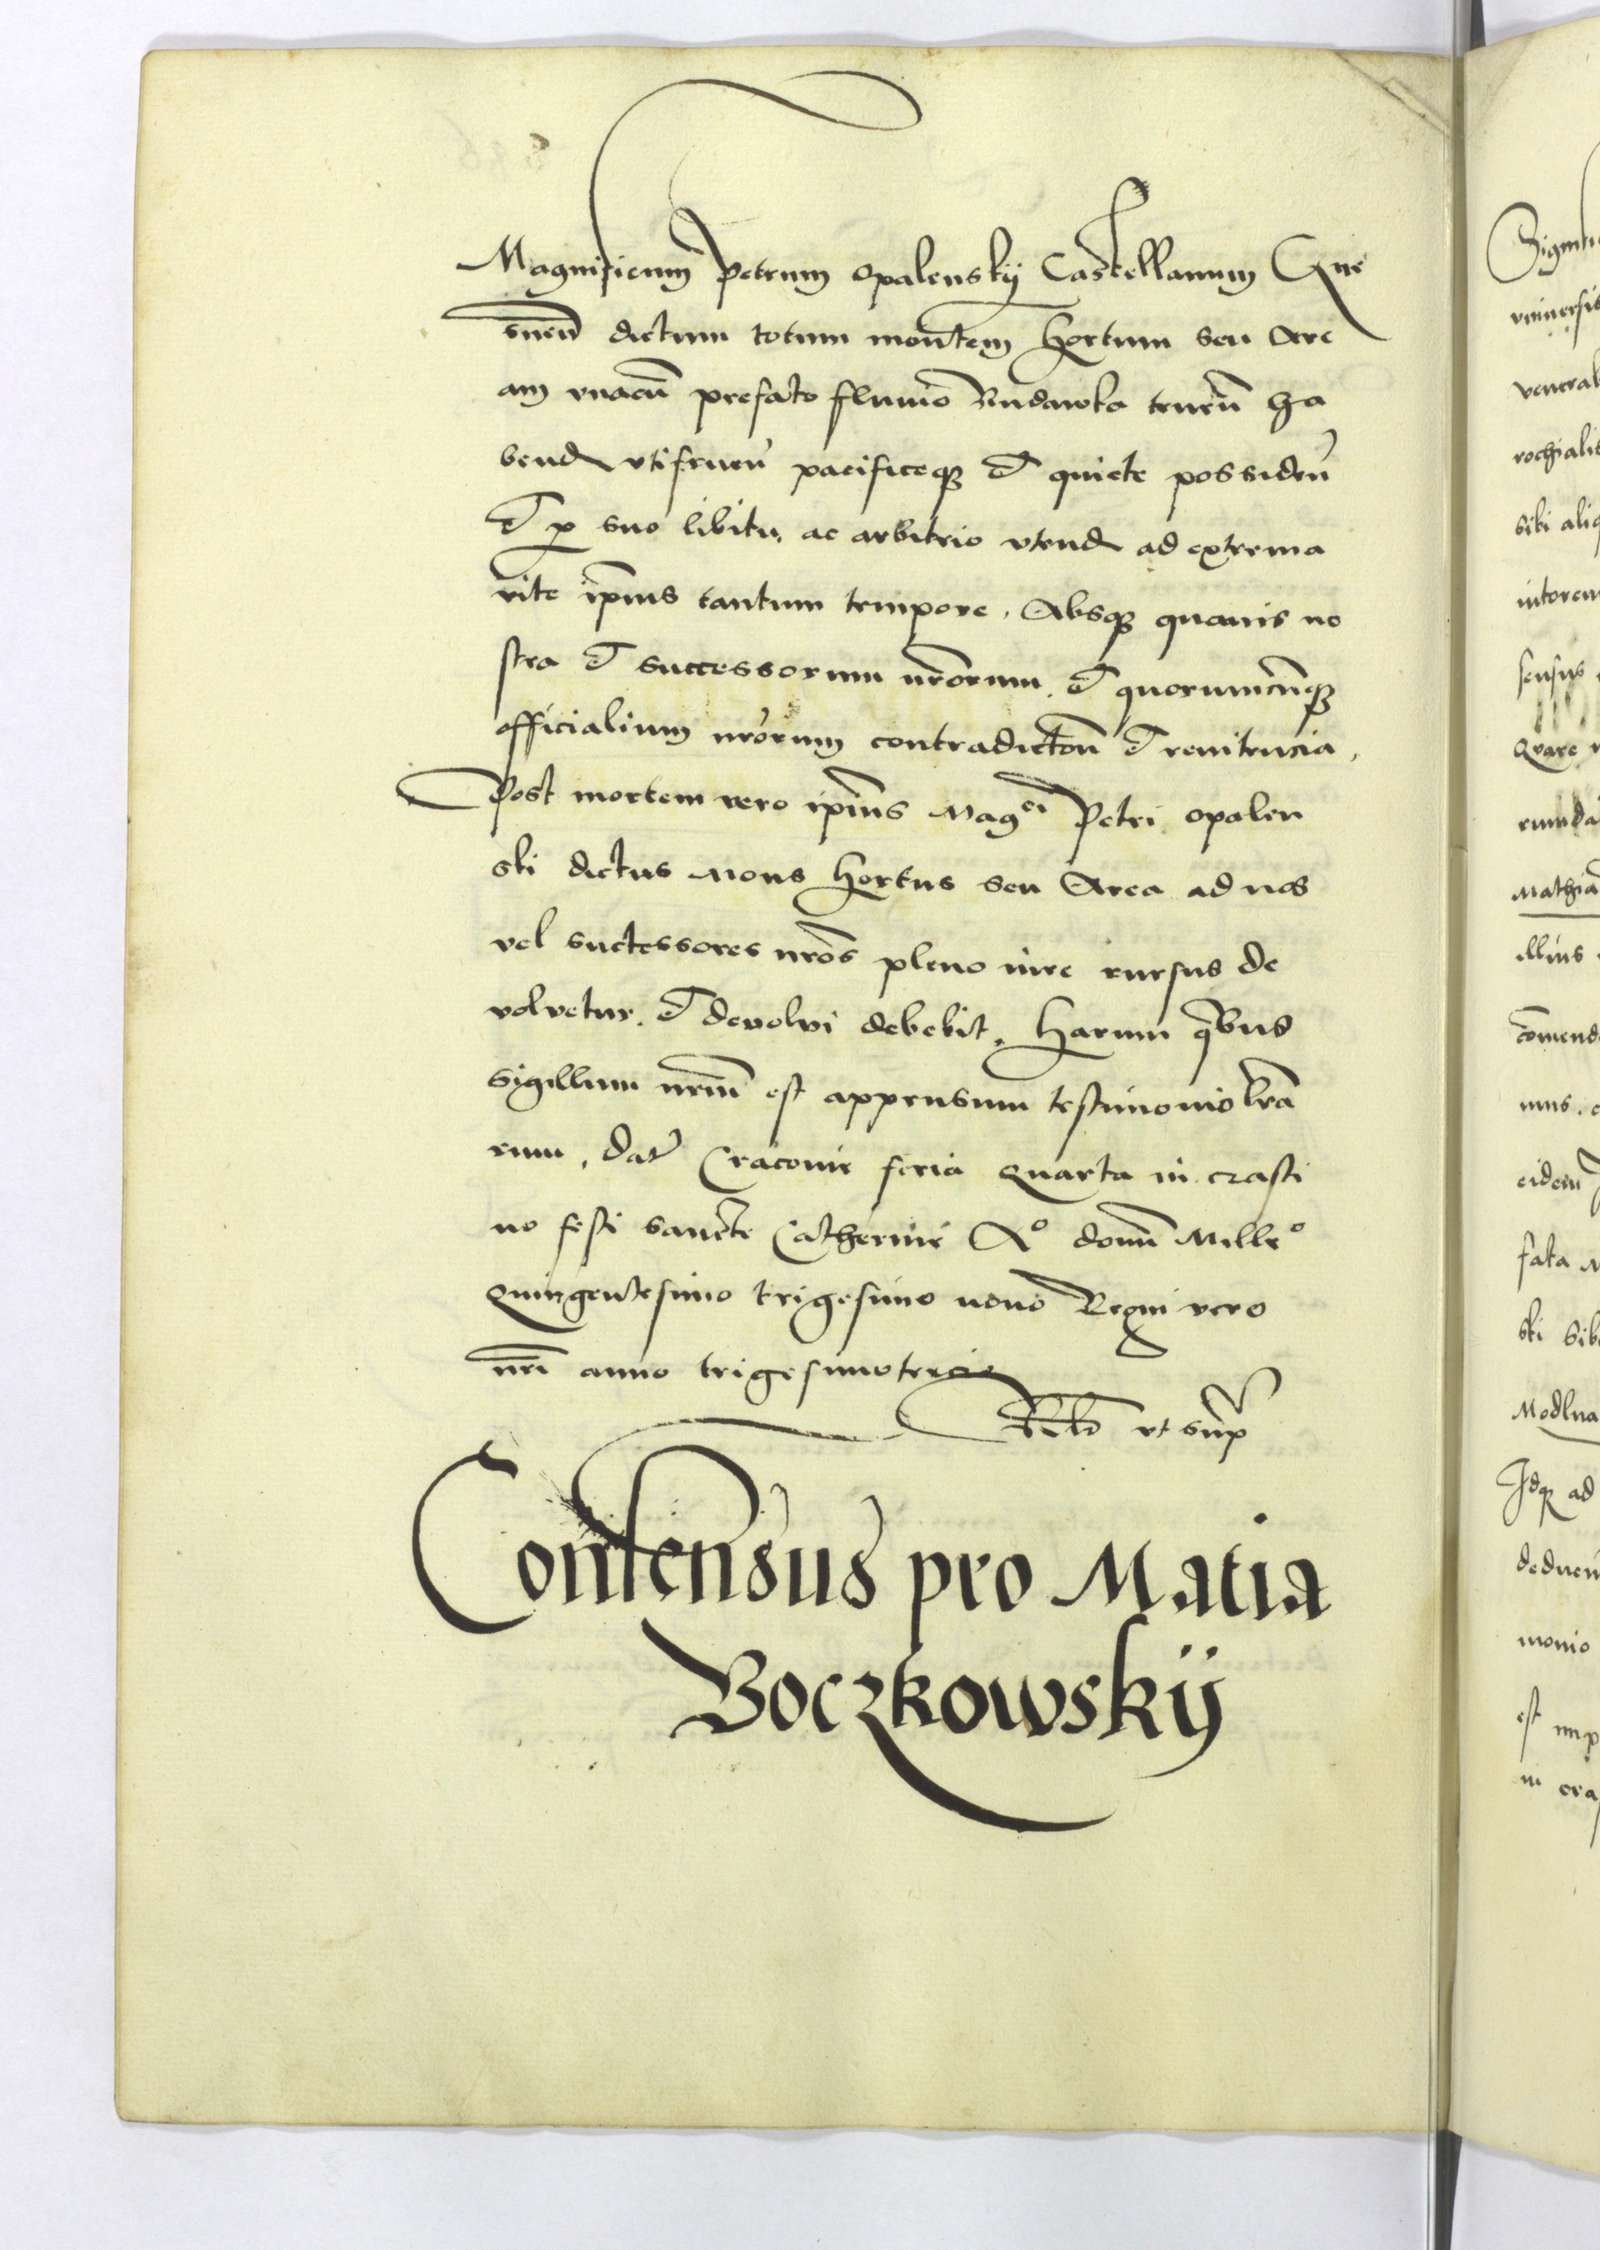 Magnificum Petrum Opalenskij Castellanum Gne
sneñ dictum totum montem Hortum seu Are
am vnacũ prefato fluuio Rudawka teneñ ha
bend vtifrueñ pacificeqȝ et quiete possideñ
et p suo libitu ac arbitrio vtend ad extrema
vite ip̃ius tantum tempore. Absqȝ quauis no
stra et successorum nr̃orum et quorumcũqȝ
officialium nr̃orum contradictioñ et renitencia.
Post mortem vero ip̃ius Mag^ci Petri Opalen
ski dictus Mons Hortus seu Area ad nos
vel successores nr̃os pleno iure rursus de
volvetur et devolvi debebit. Harum q̃bus
sigillum nr̃um est appensum testimonio lr̃a
rum. Dat̃ Cracouie feria quarta in crasti
no festi sancte Catherine A° domñi Mill°
quingentesimo trigesimo nono Regni vero
nr̃i anno trigesimotercio
Relo vt supr
Consensus pro Matia
Boczkowskij
Sigmu
vniuersis
veneral
rochialis
sibi aliq
intorem
sensus
Quare
rumda
Mathia
illius
comend
mus.
eidem
fata M
ski Sib
Modlna
Idqȝ ad
deduceñ
monio
est imp
in cra